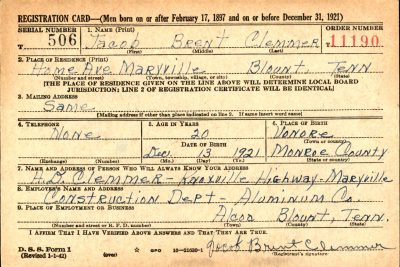 REGISTRATION CARD—(Men born on or after February 17, 1897 and on or before December 31, 1921)
SERIAL NUMBER 1. NAME (Print) ORDER NUMBER
506 Jacob Brent Clemmer 11190
(First) (Middle) (Last)
2. PLACE OF RESIDENCE (Print)
Home Ave Maryville Blount, Tenn
(Number and street) (Town, township, village, or city) (County) (State)
[THE PLACE OF RESIDENCE GIVEN ON THE LINE ABOVE WILL DETERMINE LOCAL BOARD
JURISDICTION; LINE 2 OF REGISTRATION CERTIFICATE WILL BE IDENTICAL]
3. MAILING ADDRESS
Same
[Mailing address if other than place indicated on line 2. If same insert word same]
4. TELEPHONE 5. AGE IN YEARS 6. PLACE OF BIRTH
None 20 Vonore
DATE OF BIRTH (Town or county)
Dec 13 1921 Monroe County
(Exchange) (Number) (Mo.) (Day) (Yr.) (State or country)
7. NAME AND ADDRESS OF PERSON WHO WILL ALWAYS KNOW YOUR ADDRESS
H.D. Clemmer - Knoxville Highway - Maryville
8. EMPLOYER'S NAME AND ADDRESS
Construction Dept - Aluminum Co.
9. PLACE OF EMPLOYMENT OR BUSINESS
Alcoa Blount, Tenn.
(Number and street or R. F. D. number) (Town) (County) (State)
I AFFIRM THAT I HAVE VERIFIED ABOVE ANSWERS AND THAT THEY ARE TRUE.
D. S. S. Form 1
(Revised 1-1-42) GPO Jacob Brent Clemmer
(Registrant's signature)